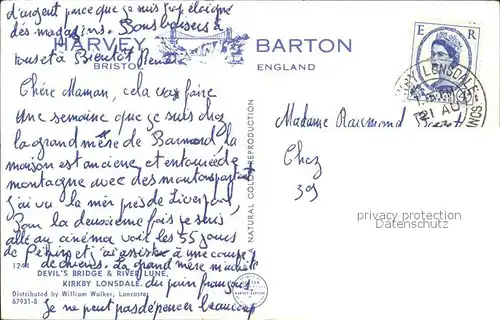 d'argent parce que je suis trop éloignée
des magasins. Bons baisers à
tous et à Bientôt
HARVEY BARTON
BRISTOL ENGLAND
E R
KIRKBY LONSDALE
21 AU
Chère Maman, cela va faire
Une semaine que je suis chez
la grand mère de Barmond, la
maison est ancienne et entourée de
montagne avec des moutons partout
j'ai vu la mer près de Liverpool,
Pour la deuxième fois je suis
allé au cinéma voir les 55 jours
de Pékin et j'ai assisté à une course
de chiens. La grand mère m'achète
du pain français
Je ne peut pas dépenser beaucoup
Madame Raymond
Chez
39
NATURAL COLOR REPRODUCTION
privacy protection
watermark
DEVIL'S BRIDGE & RIVER LUNE,
KIRKBY LONSDALE.
Distributed by William Walker, Lancaster
67931-B